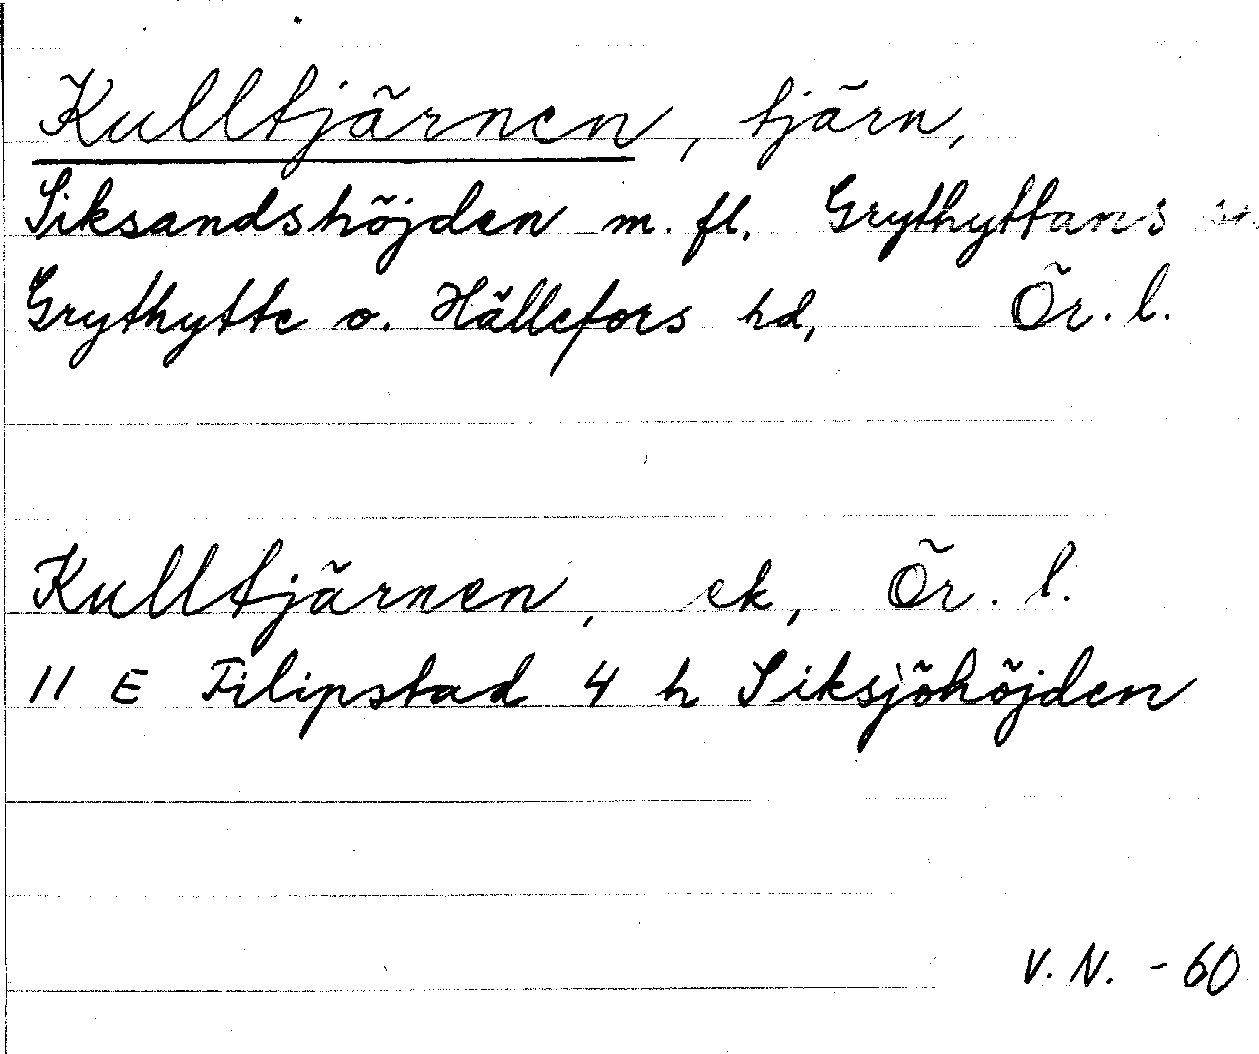 Kulltjärnen, tjärn,
Siksandshöjden m. fl. Grythyttans
Grythytte o. Hällefors hd, Ör. l.
Kulltjärnen, ek, Ör. l.
11 E Filipstad 4 h Siksjöhöjden
V. N. - 60